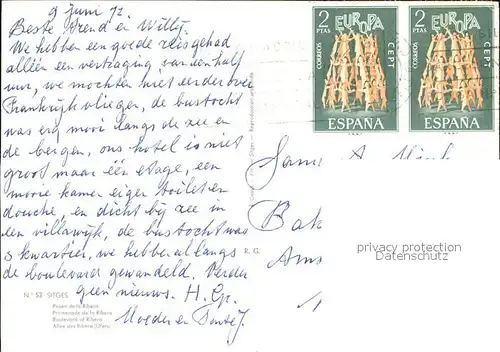 9 juni 72
Beste Arend en Willy.
We hebben een goede reis gehad
alléén een vertraging van een half
uur, we mochten niet eerder over
Frankrijk vliegen, de bustocht
was erg mooi langs de zee en
de bergen, ons hotel is niet
groot maar één etage, een
mooie kamer eigen toilet en
douche, en dicht bij zee in
een villawijk, de bustocht was
5 kwartier, we hebben al langs
de boulevard gewandeld. Verder
geen nieuws. H. Gr.
Moeder en Tante J.
R. G.
N.° 53 - SITGES
Paseo de la Ribera
Promenade de la Ribera
Boulevard of Ribera
Allee des Ribera (Ufers)
2
PTAS
EUROPA
CORREOS
CEPT
ESPAÑA
2
PTAS
EUROPA
CORREOS
CEPT
ESPAÑA
Fam. A.
Bak
Ams
privacy protection
Datenschutz